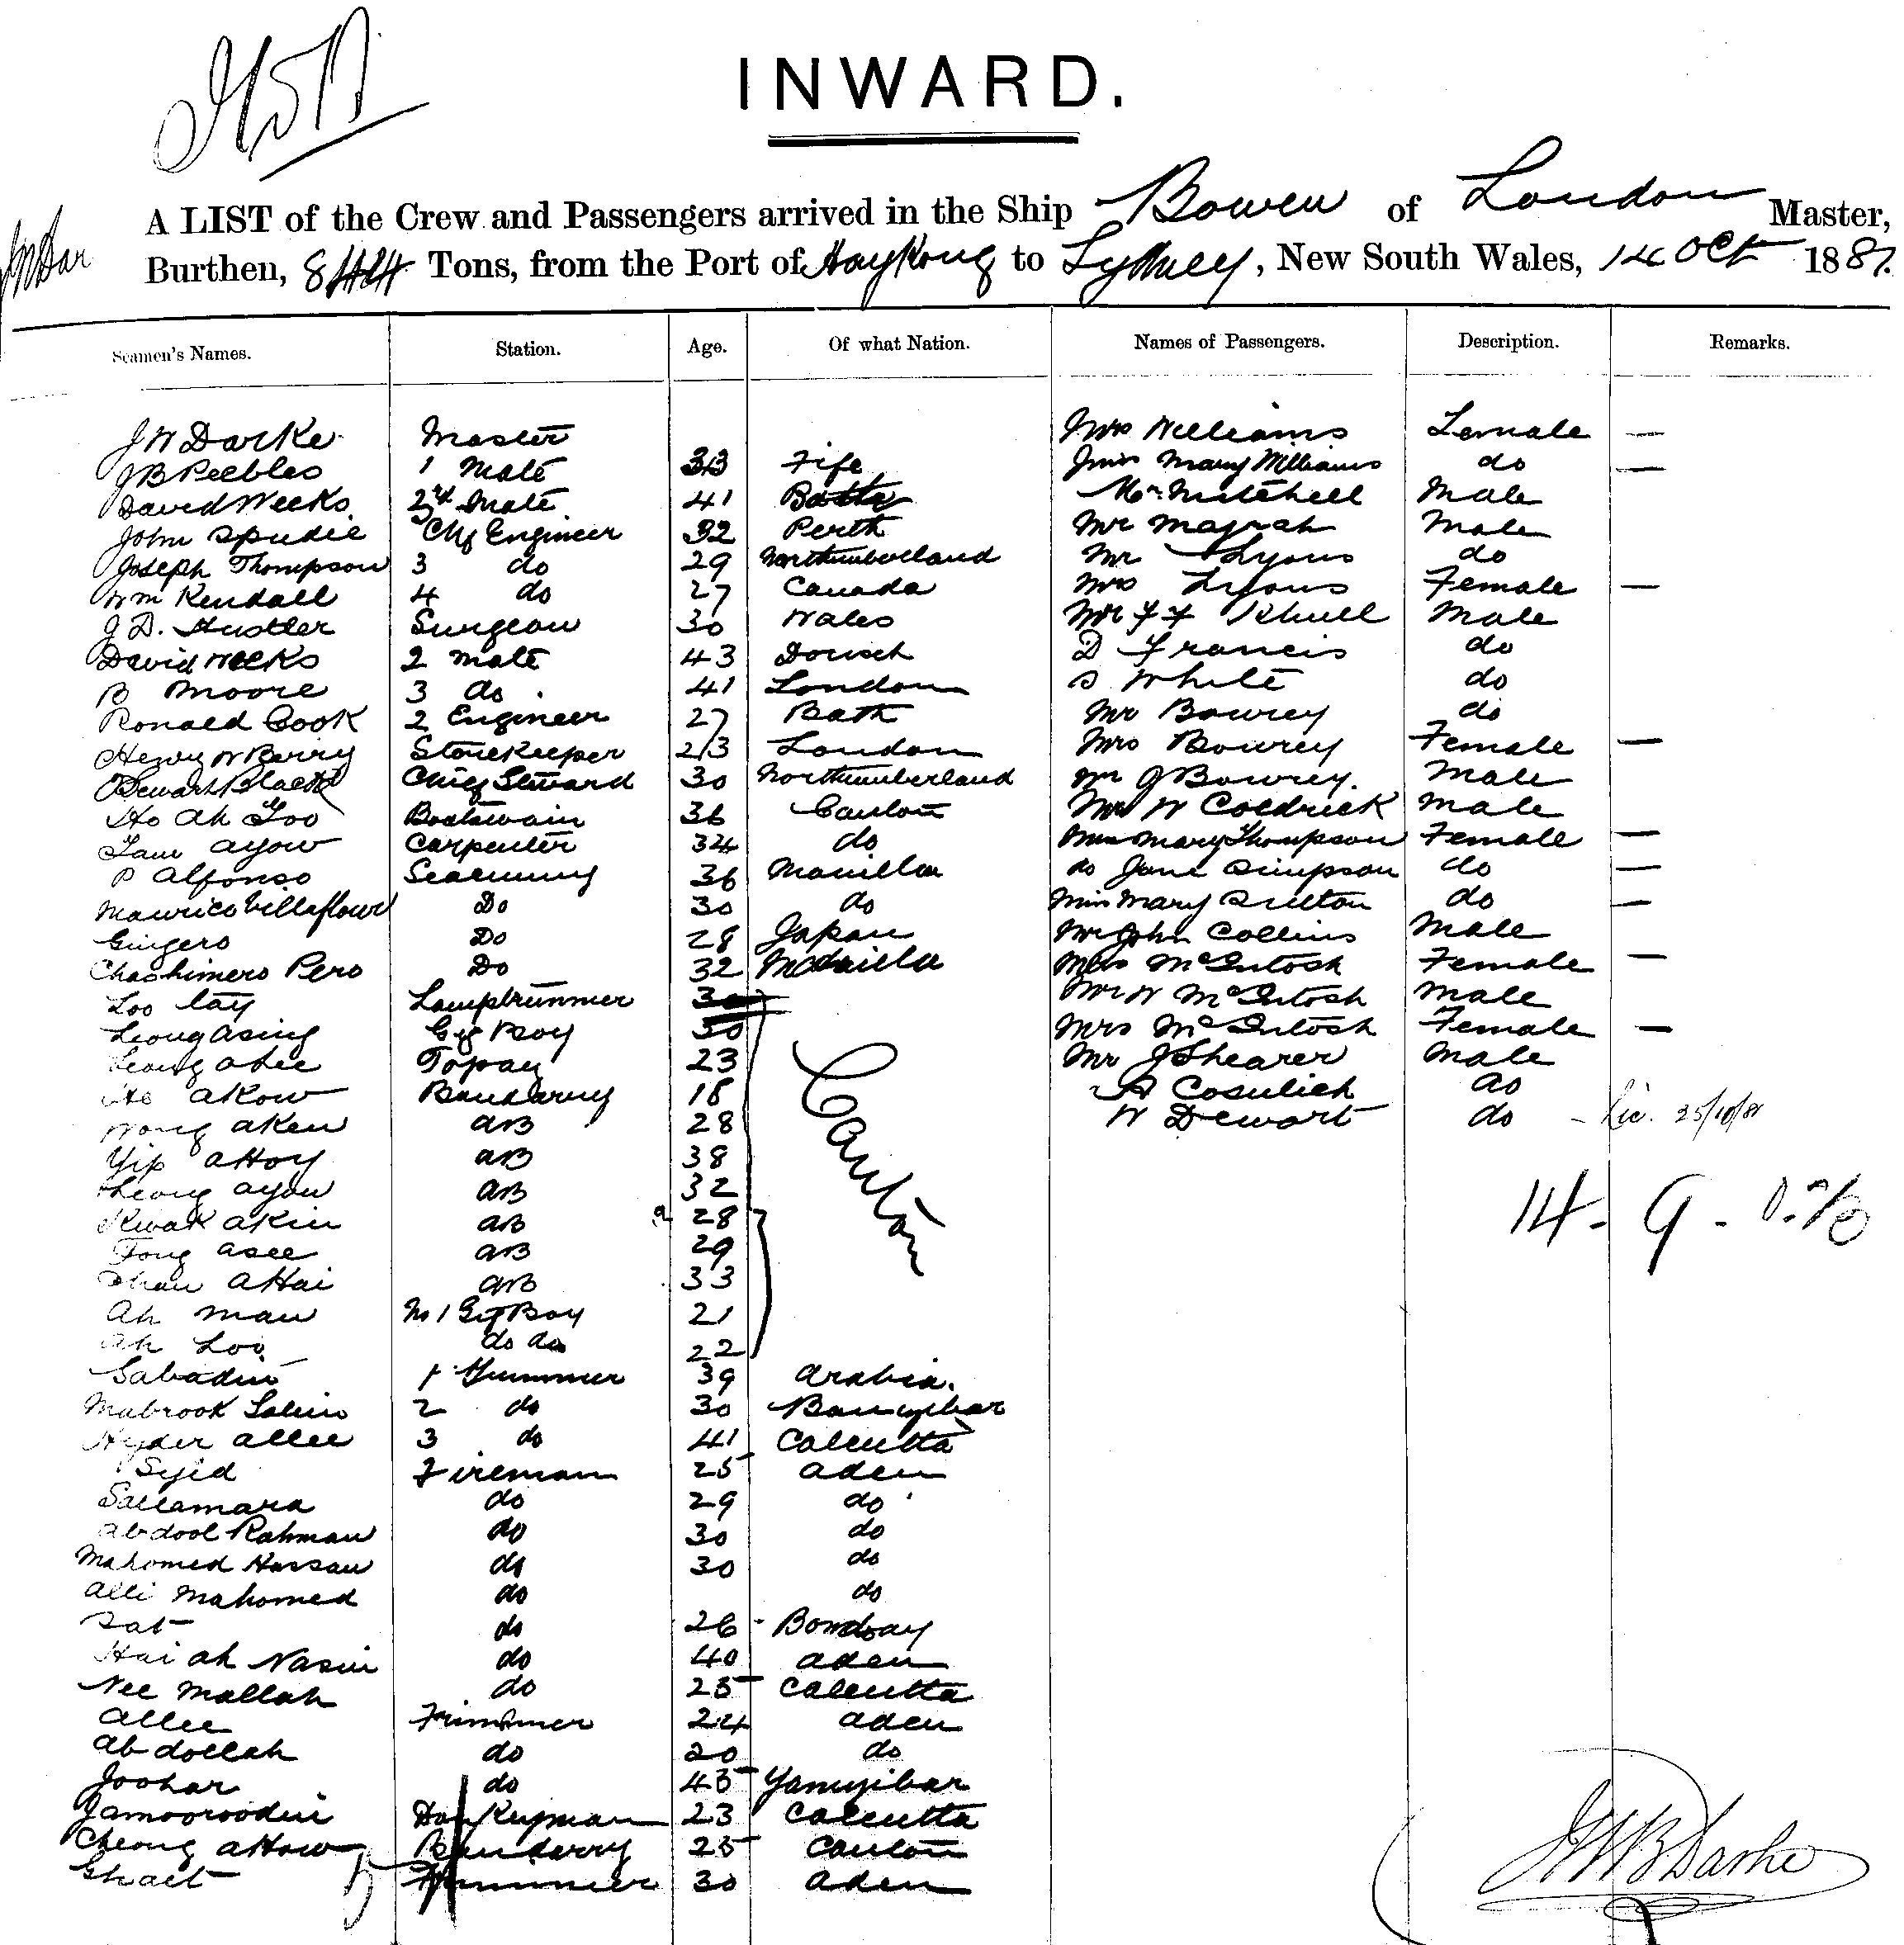 INWARD.
A LIST of the Crew and Passengers arrived in the Ship Bowen of London Master,
Burthen, 844 Tons, from the Port of HongKong to Sydney, New South Wales, 14 Oct 1881.
Seamen's Names. Station. Age. Of what Nation. Names of Passengers. Description. Remarks.
J W Darke Master Mrs Williams Female —
J B Peebles 1 Mate 33 Fife Miss Mary Williams do —
David Weeks 2nd Mate 41 Mr Mitchell Male
John Spudie Chf Engineer 32 Perth Mr Majrah Male
Joseph Thompson 3 do 29 Northumberland Mr Lyons do
Wm Kendall 4 do 27 Canada Mrs Lyons Female —
J D. Hustler Surgeon 30 Wales Mr Male
David Weeks 2 Mate 43 D Francis do
B Moore 3 do 41 London S White do
Ronald Cook 2 Engineer 27 Bath Mr Bowrey do
Henry W Berry Storekeeper 23 London Mrs Bowrey Female —
Dewart Black Chief Steward 30 Northumberland Mr J Bowrey. Male
Ho Ah Loo Boatswain 36 Canton Mr W Coldrick Male
Lam Ayow Carpenter 34 do Miss Mary Thompson Female —
P Alfonso Seacunny 36 Manilla do Jane Simpson do —
Maurico Villaflowr Do 30 do Miss Mary Sutton do —
Gingero Do 28 Japan Mr John Collins Male
Chashimero Pero Do 32 Manilla Miss McIntosh Female —
Loo Lay Lamptrimmer 30 Mr W McIntosh Male
Leong Asing Boy 30 Mrs McIntosh Female —
Leong Abee Topay 23 Mr J Shearer Male
Ho Akow Bandarry 18 A Cosulich do
Wong Aken AB 28 W Dewart do — Lic. 25/10/81
Yip Ahoy AB 38 Canton
Cheong Ayow AB 32
Kwak Akin AB 28 14 - 9 -
Fong Asee AB 29
Chan Ahai AB 33
Ah Man No 1 Boy 21
Ah Loo do do 22
Sabadin 1 39 Arabia.
Mabrook Salim 2 do 30
Hyder Allee 3 do 41 Calcutta
Syed Fireman 25 Aden
Sallamara do 29 do
Abdool Rahman do 30 do
Mahomed Hassan do 30 do
Alli Mahomed do do
Sat do 26 Bombay
Hai ah Nasir do 40 Aden
Nee Mallah do 25 Calcutta
Allee Trimmer 24 Aden
Abdollah do 20 do
Joohar do 45
Jamooroodin 23 Calcutta
Cheong Ahow Bandarry 25 Canton
Ghait Trimmer 30 Aden
J W B Darke